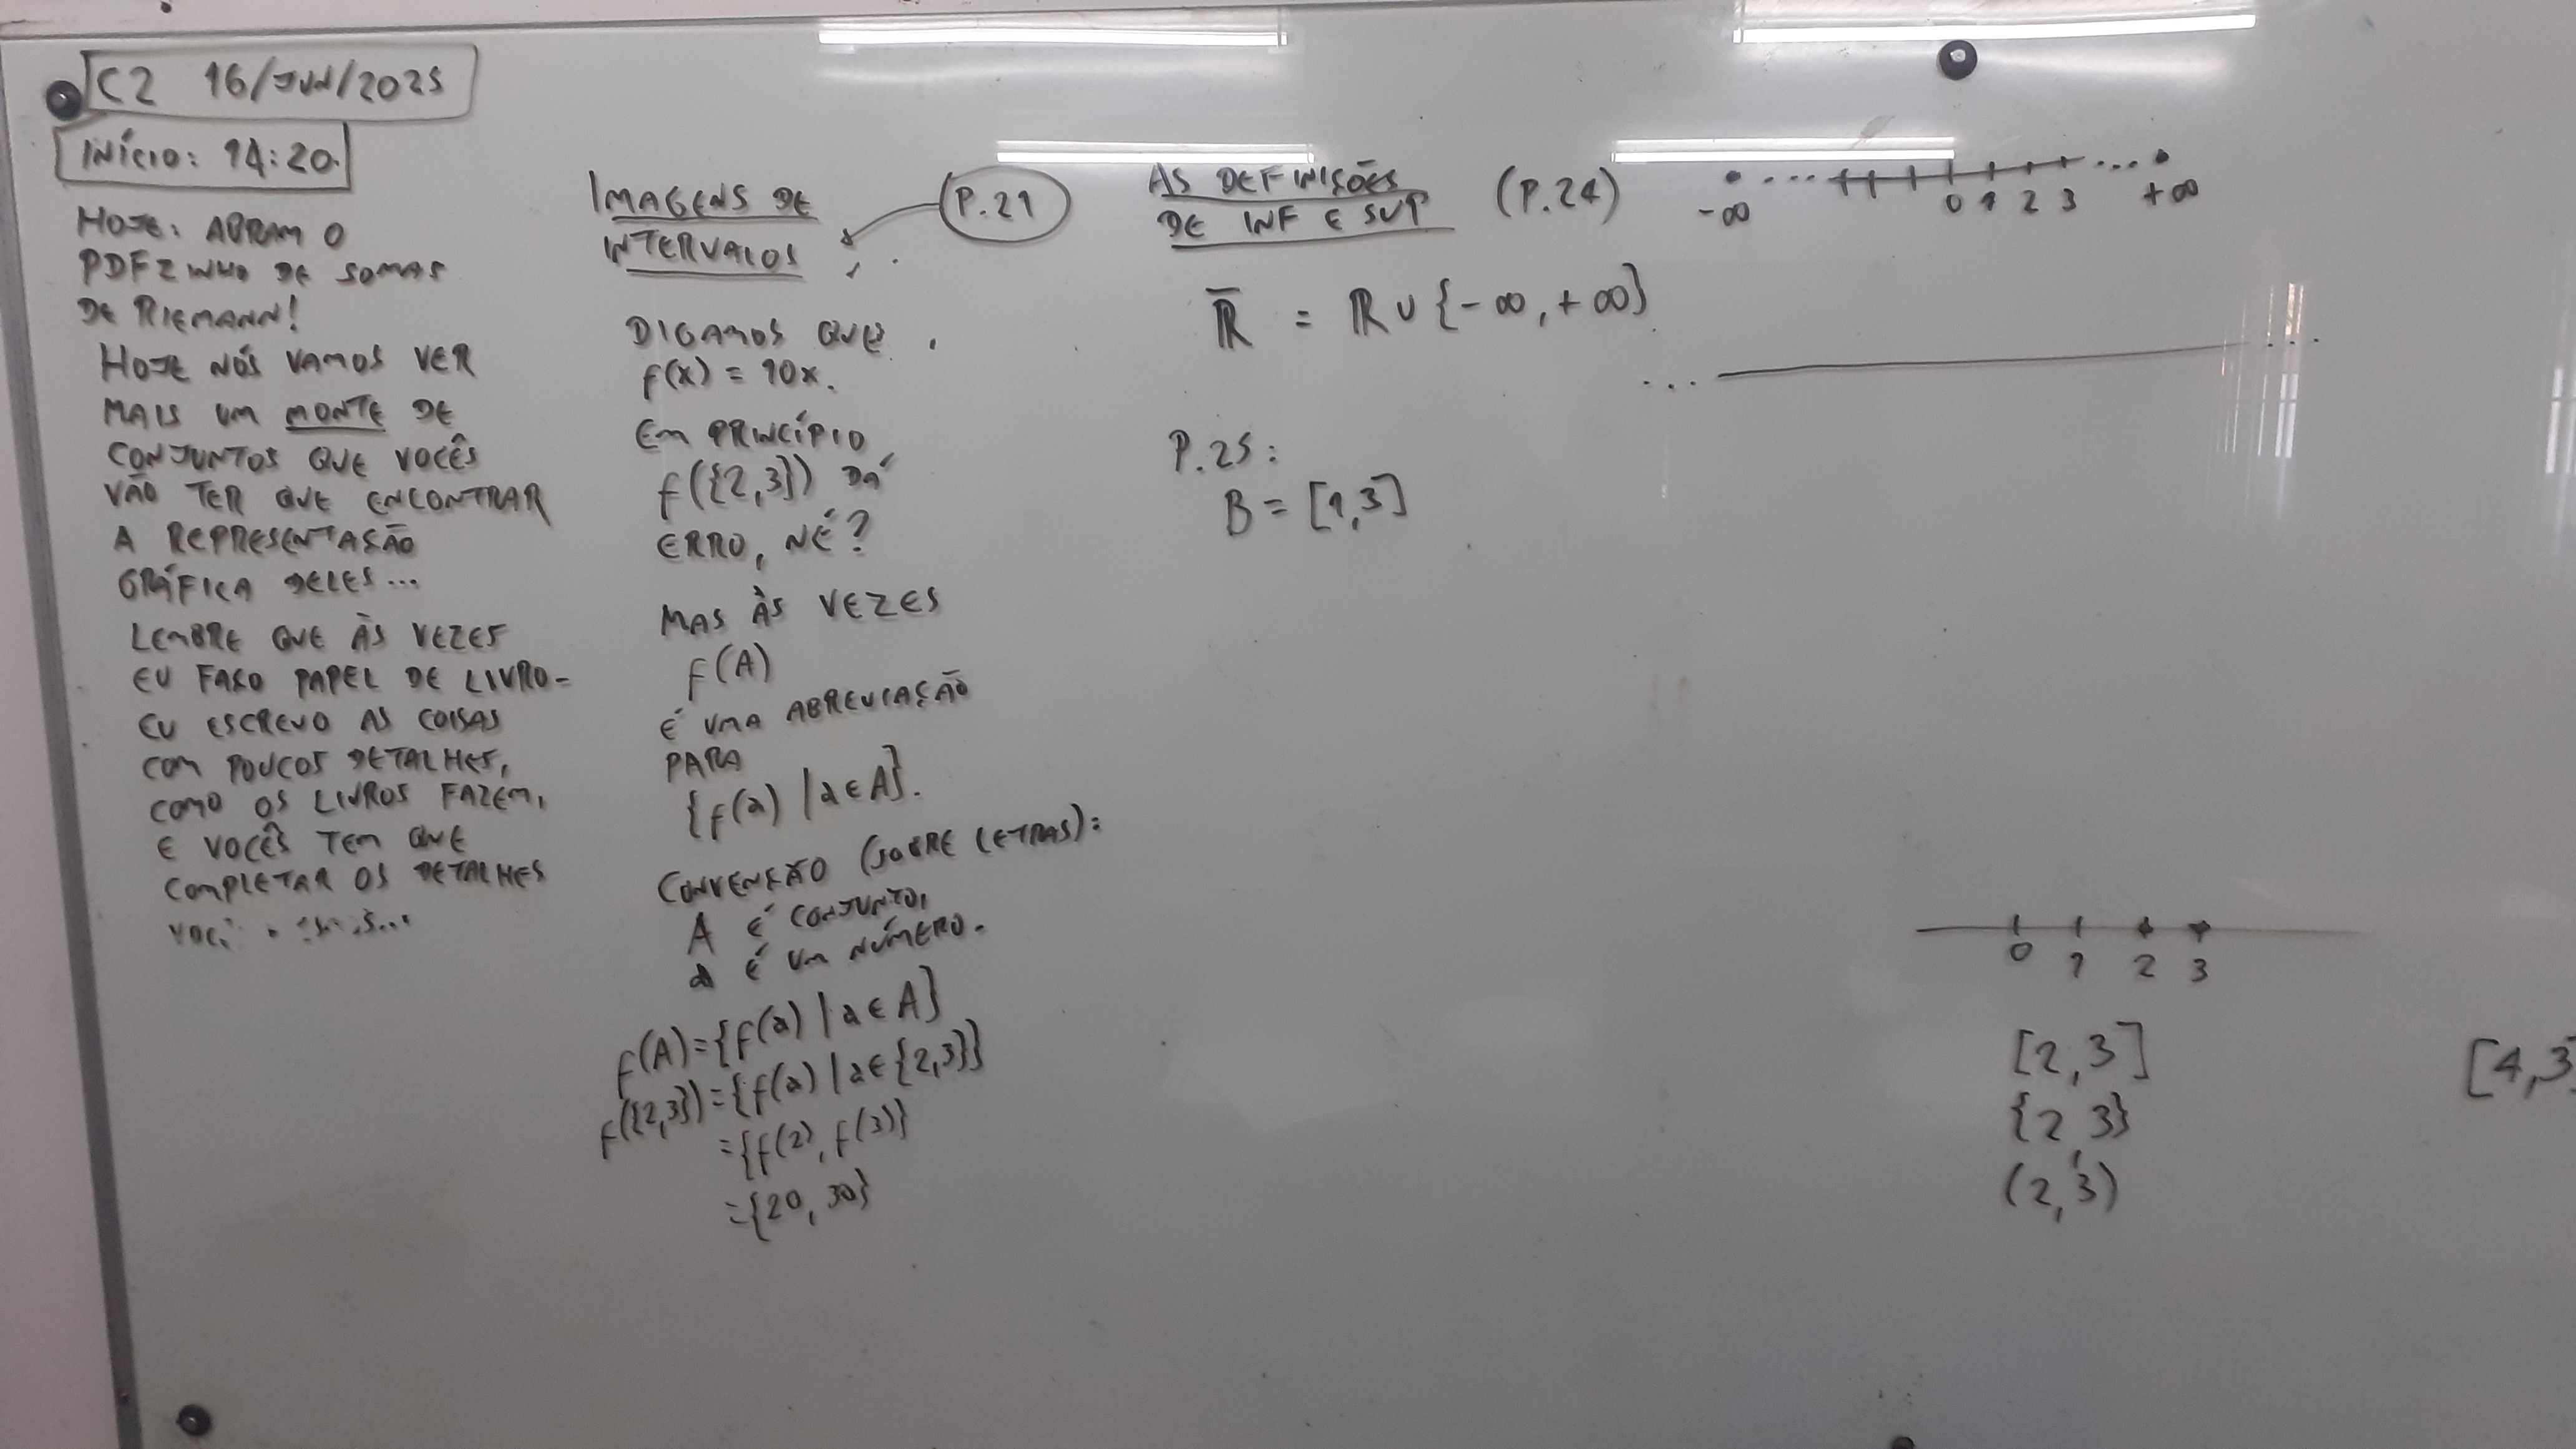 C2 16/JUN/2025
INÍCIO: 14:20.
HOJE: ABRAM O
PDFZINHO DE SOMAS
DE RIEMANN!
HOJE NÓS VAMOS VER
MAIS UM MONTE DE
CONJUNTOS QUE VOCÊS
VÃO TER QUE ENCONTRAR
A REPRESENTAÇÃO
GRÁFICA DELES...
LEMBRE QUE ÀS VEZES
EU FAÇO PAPEL DE LIVRO –
EU ESCREVO AS COISAS
COM POUCOS DETALHES,
COMO OS LIVROS FAZEM,
E VOCÊS TEM QUE
COMPLETAR OS DETALHES
IMAGENS DE
INTERVALOS
P.21
DIGAMOS QUE
f(x) = 10x.
EM PRINCÍPIO
f({2,3}) DÁ
ERRO, NÉ?
MAS ÀS VEZES
f(A)
É UMA ABREVIAÇÃO
PARA
{f(a) | a ∈ A}.
CONVENÇÃO (SOBRE LETRAS):
A É CONJUNTO,
a É UM NÚMERO.
f(A) = {f(a) | a ∈ A}
f({2,3}) = {f(a) | a ∈ {2,3}}
= {f(2), f(3)}
= {20, 30}
AS DEFINIÇÕES
DE INF E SUP (P.24)
-∞ ... 0 1 2 3 ... +∞
R̄ = R ∪ {-∞, +∞}
... ...
P.25:
B = [1,3]
0 1 2 3
[2,3]
{2,3}
(2,3)
[4,3